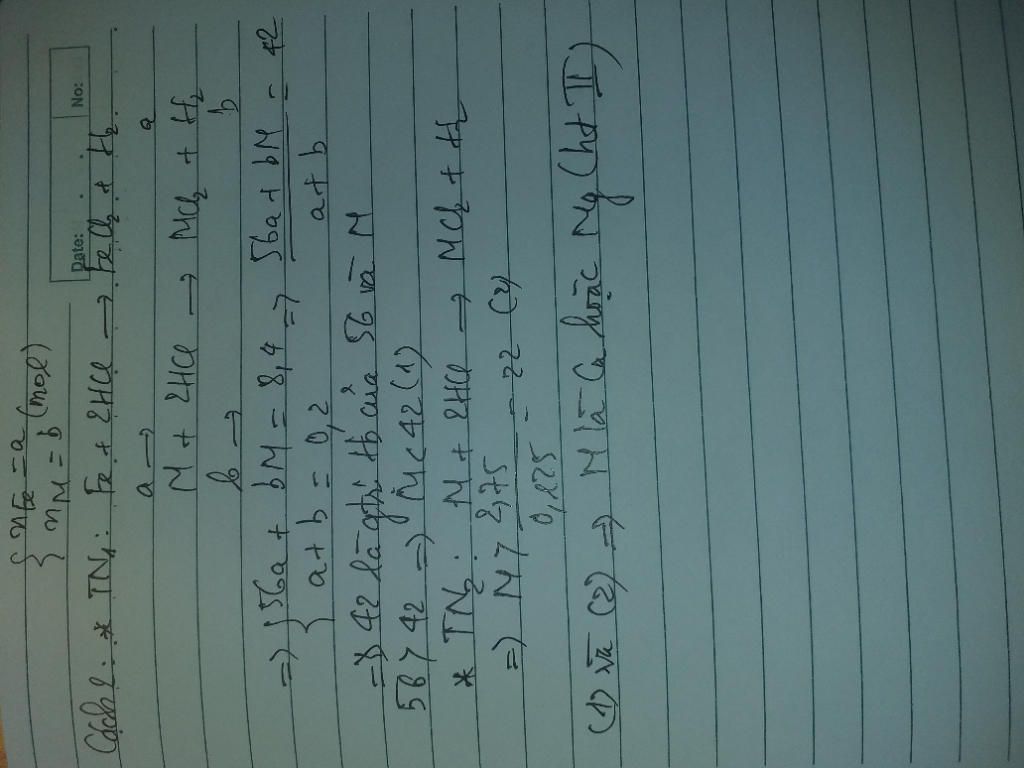 No:
Date:
{ nFe = a
{ nM = b (mol)
Cách 1: * TN1: Fe + 2HCl → FeCl2 + H2.
a → a
M + 2HCl → MCl2 + H2
b → b
=> { 56a + bM = 8,4 => 56a + bM / a + b = 42
{ a + b = 0,2
=> 42 là gtri tb của 56 và M
56 > 42 => M < 42 (1)
* TN2: M + 2HCl → MCl2 + H2
=> M > 2,75 / 0,125 = 22 (2)
(1) và (2) => M là Ca hoặc Mg (htt II)